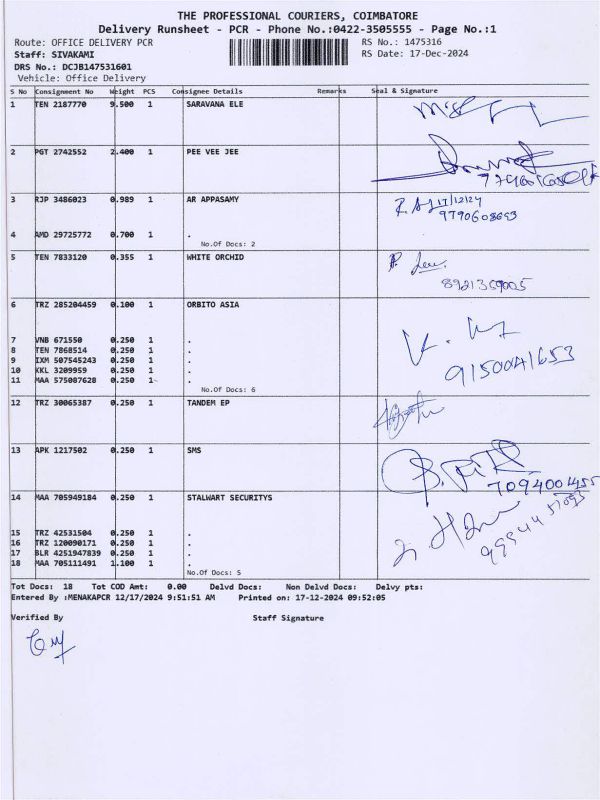 THE PROFESSIONAL COURIERS, COIMBATORE
Delivery Runsheet - PCR - Phone No.:0422-3505555 - Page No.:1
Route: OFFICE DELIVERY PCR RS No.: 1475316
Staff: SIVAKAMI RS Date: 17-Dec-2024
DRS No.: DCJB147531601
Vehicle: Office Delivery
S No Consignment No Weight PCS Consignee Details Remarks Seal & Signature
1 TEN 2187770 9.500 1 SARAVANA ELE
2 PGT 2742552 2.400 1 PEE VEE JEE
3 RJP 3486023 0.989 1 AR APPASAMY 17/12/24
9790608693
4 AMD 29725772 0.700 1 .
No.Of Docs: 2
5 TEN 7833120 0.355 1 WHITE ORCHID
8921369005
6 TRZ 285204459 0.100 1 ORBITO ASIA
7 VNB 671550 0.250 1 .
8 TEN 7868514 0.250 1 .
9 IXM 507545243 0.250 1 .
10 KKL 3209959 0.250 1 .
11 MAA 575087628 0.250 1 .
9150041653
No.Of Docs: 6
12 TRZ 30065387 0.250 1 TANDEM EP
13 APK 1217502 0.250 1 SMS
7094001455
14 MAA 705949184 0.250 1 STALWART SECURITYS
15 TRZ 42531504 0.250 1 .
16 TRZ 120090171 0.250 1 .
17 BLR 4251947839 0.250 1 .
18 MAA 705111491 1.100 1 .
No.Of Docs: 5
Tot Docs: 18 Tot COD Amt: 0.00 Delvd Docs: Non Delvd Docs: Delvy pts:
Entered By :MENAKAPCR 12/17/2024 9:51:51 AM Printed on: 17-12-2024 09:52:05
Verified By Staff Signature